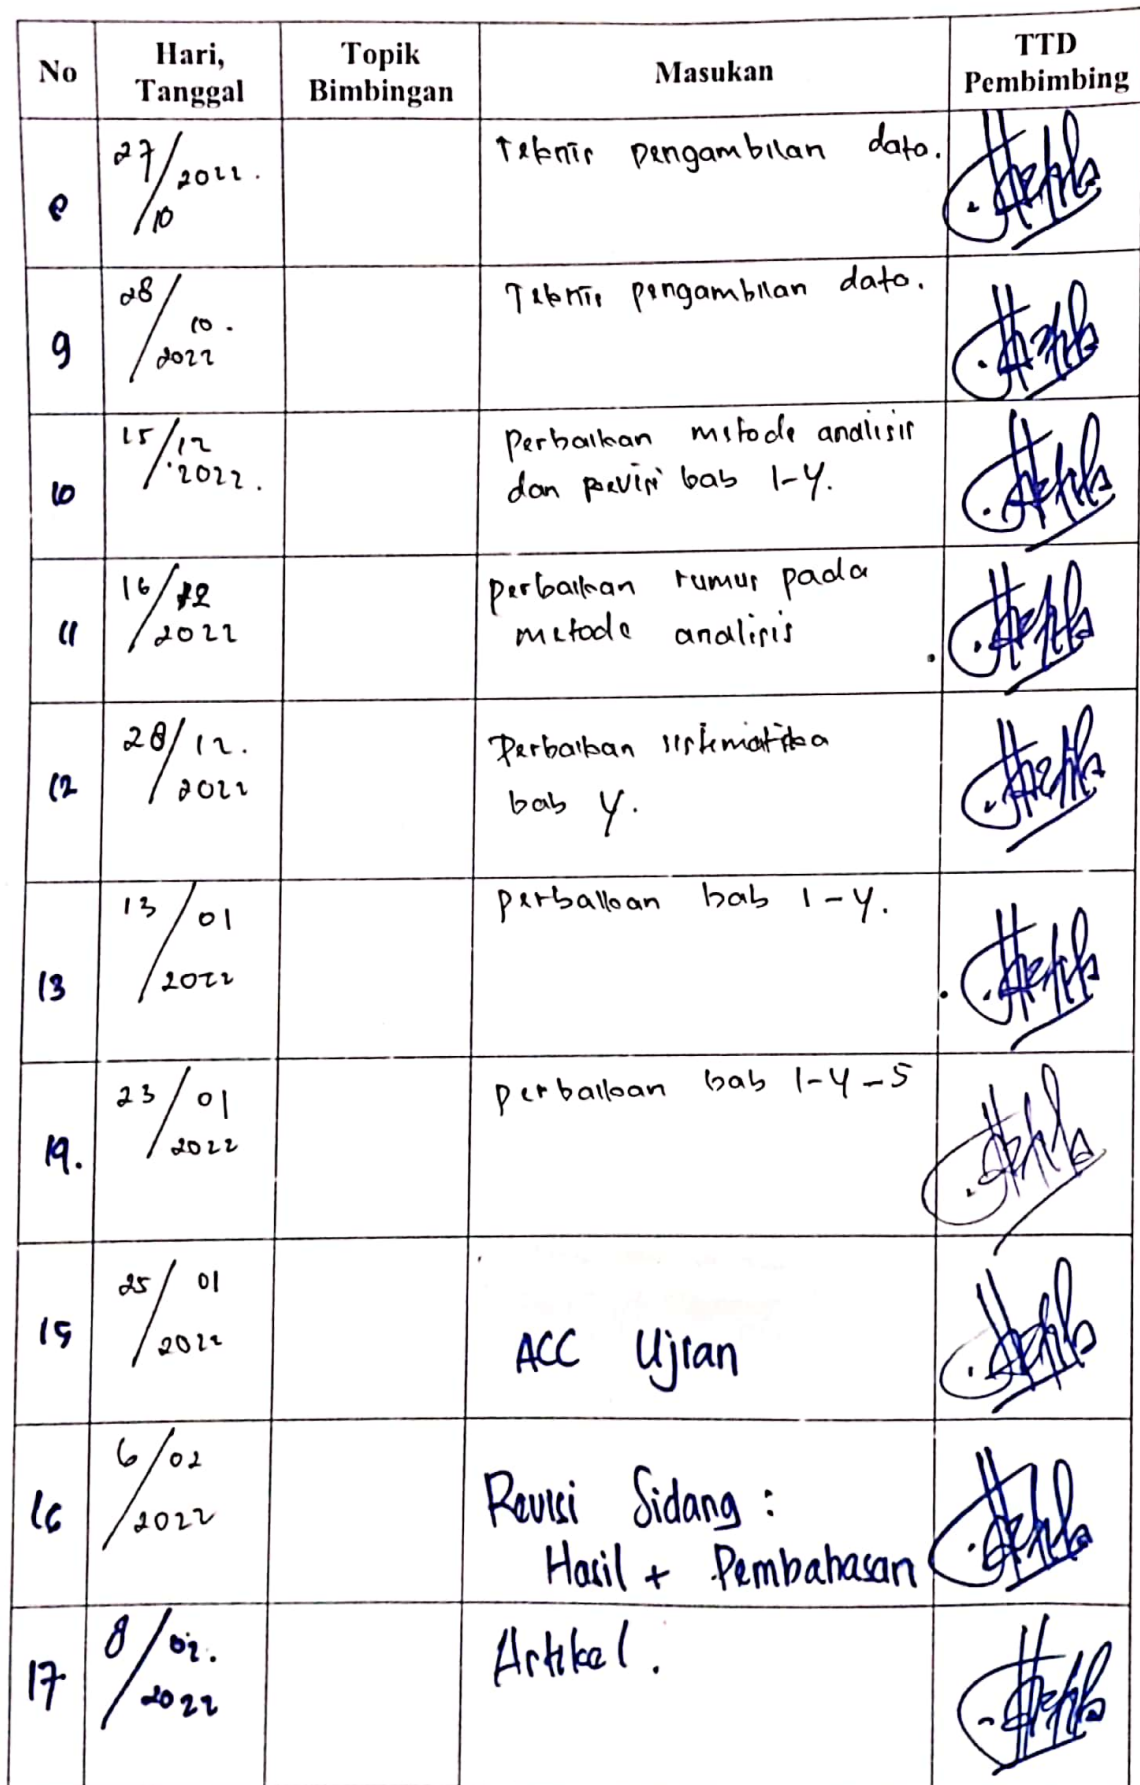 No Hari, Tanggal Topik Bimbingan Masukan TTD Pembimbing
8 27/10/2022. Teknis pengambilan data.
9 28/10.2022 Teknis pengambilan data.
10 15/12.2022. Perbaikan metode analisis
dan revisi bab 1-4.
11 16/12/2022 perbaikan rumus pada
metode analisis
12 28/12.2022 Perbaikan sistematika
bab 4.
13 13/01/2022 perbaikan bab 1-4.
14. 23/01/2022 perbaikan bab 1-4-5
15 25/01/2022 ACC Ujian
16 6/02/2022 Revisi Sidang :
Hasil + Pembahasan
17 8/02.2022 Artikel.